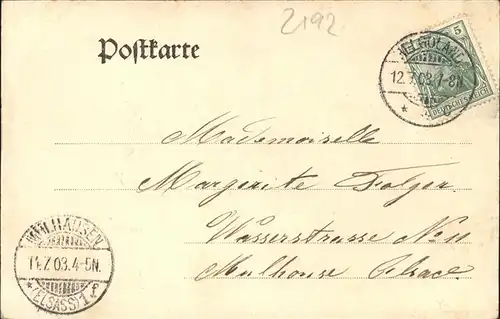 2192.
Postkarte
HELGOLAND
12.7.03.7-8N.
5
DEUTSCHES REICH
Mademoiselle
Margerite Folzer
Wasserstrasse No 11
Mulhouse Elsace.
MÜLHAUSEN
14.7.03.4-5N.
* (ELSASS) 1 f